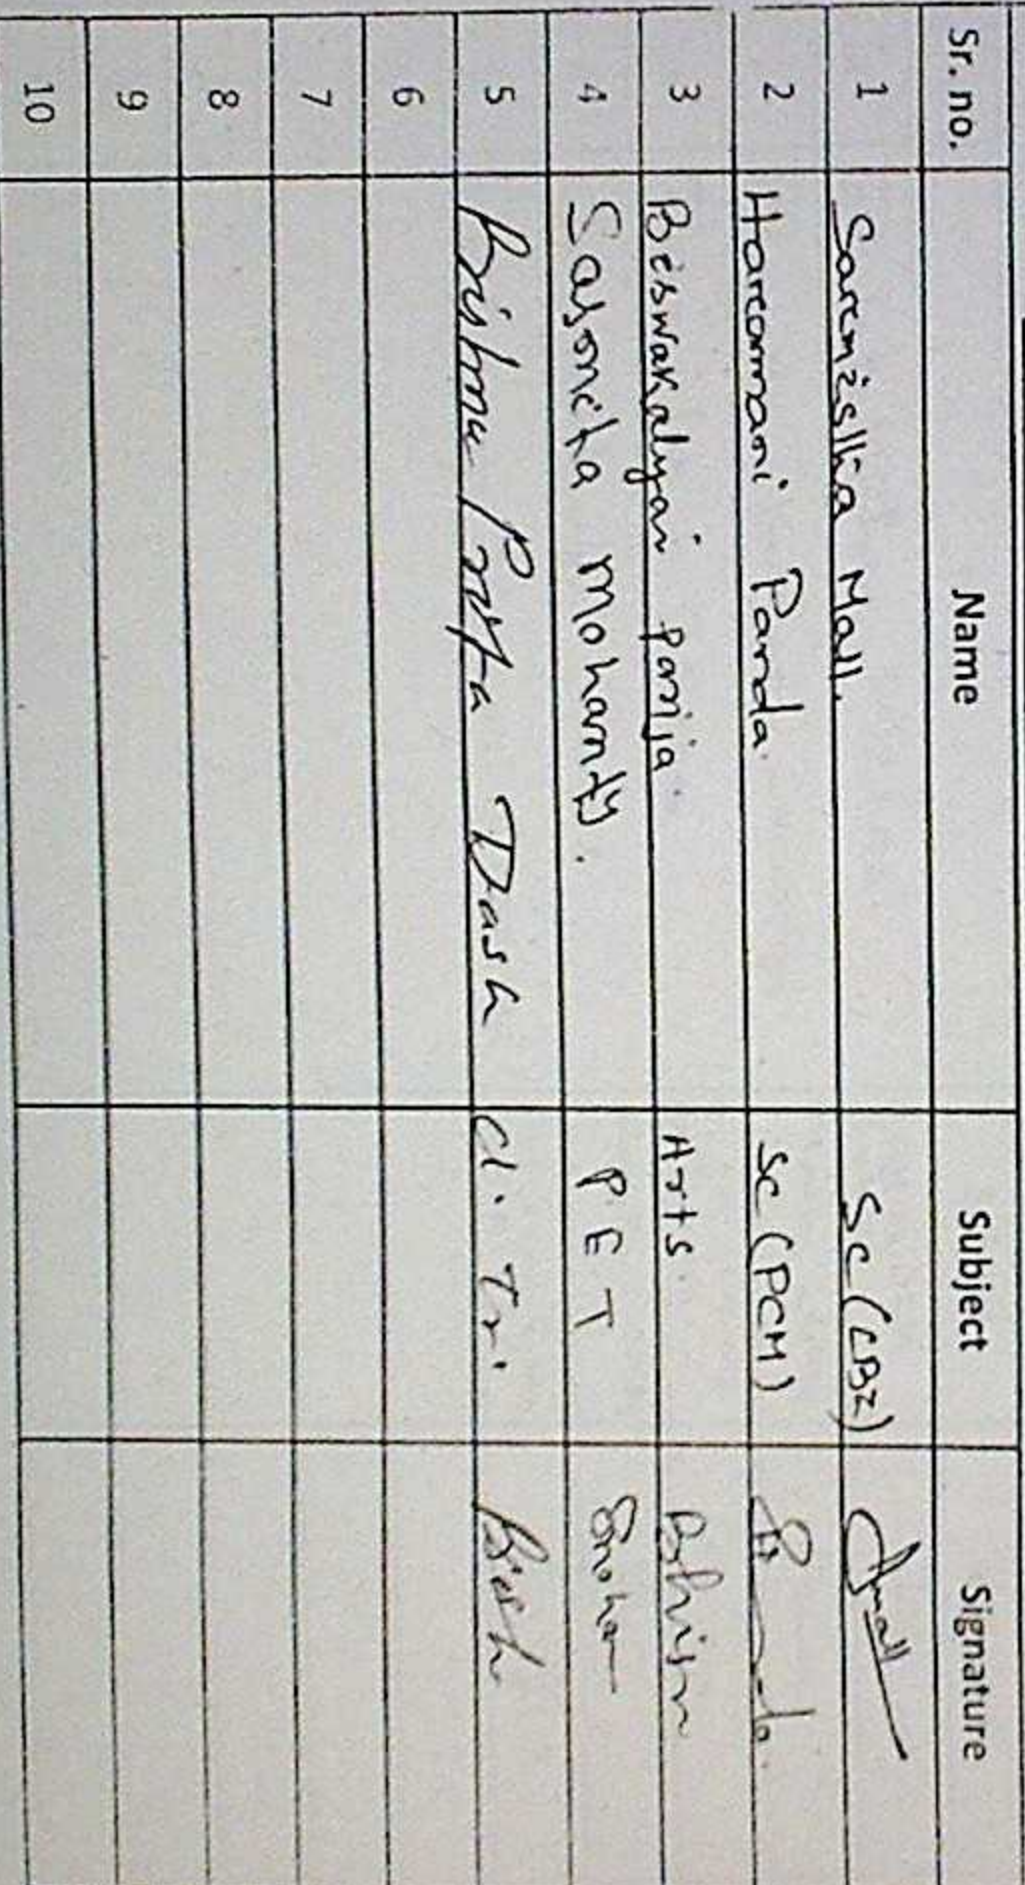 Sr. no. Name Subject Signature
1 Sarmislha Mall. Sc (CBZ)
2 Haramani Panda Sc (PCM)
3 Biswakalyan parija Arts
4 Sasmita Mohanty. PET
5 Bishnu Dash Cl. Tr.
6
7
8
9
10